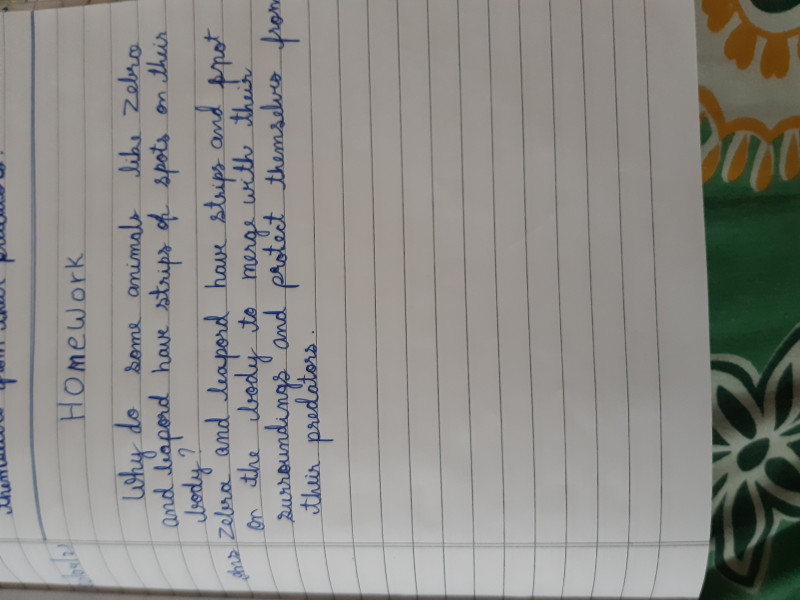 themselves from their predators.
Homework
Why do some animals like Zebra
and leapord have strips of spots on their
body?
Ans Zebra and leapord have strips and spot
on the body to merge with their
surroundings and protect themselves from
their predators.